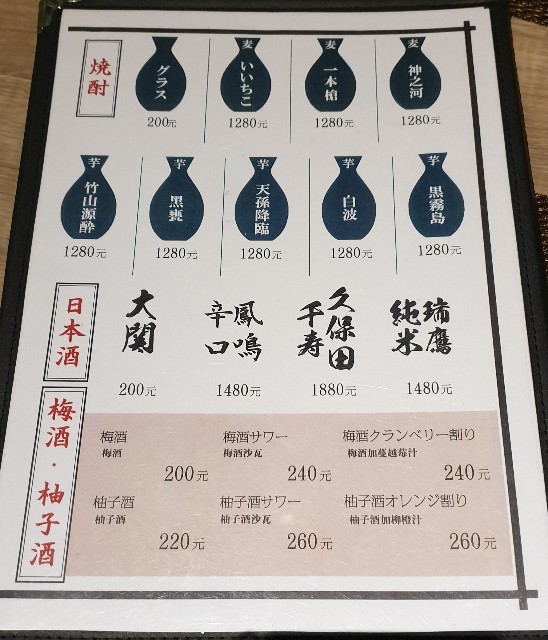 焼酎
グラス
200元
麦
いいちこ
1280元
麦
一本槍
1280元
麦
神之河
1280元
芋
竹山源酔
1280元
芋
黒甕
1280元
芋
天孫降臨
1280元
芋
白波
1280元
芋
黒霧島
1280元
日本酒
大関
200元
鳳鳴
辛口
1480元
久保田
千寿
1880元
瑞鷹
純米
1480元
梅酒・柚子酒
梅酒
梅酒
200元
梅酒サワー
梅酒沙瓦
240元
梅酒クランベリー割り
梅酒加蔓越莓汁
240元
柚子酒
柚子酒
220元
柚子酒サワー
柚子酒沙瓦
260元
柚子酒オレンジ割り
柚子酒加柳橙汁
260元